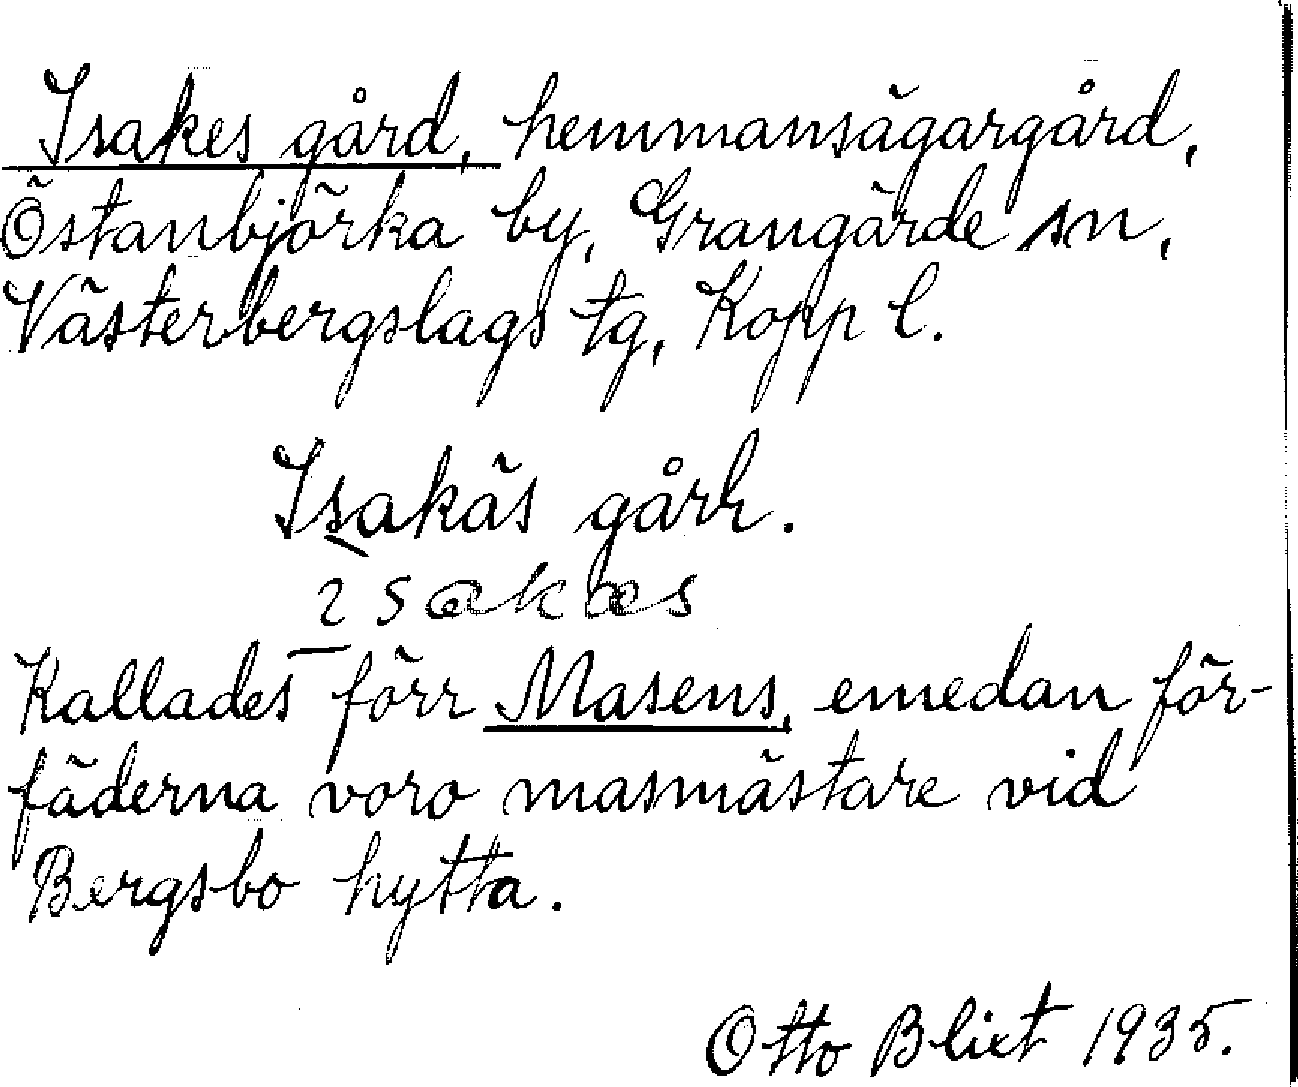 Isakes gård, hemmansägargård,
Östanbjörka by, Grangärde sn,
Västerbergslags tg, Kopp l.
Isakäs gårh.
isakæs
Kallades förr Masens, emedan för-
fäderna voro masmästare vid
Bergsbo hytta.
Otto Blixt 1935.